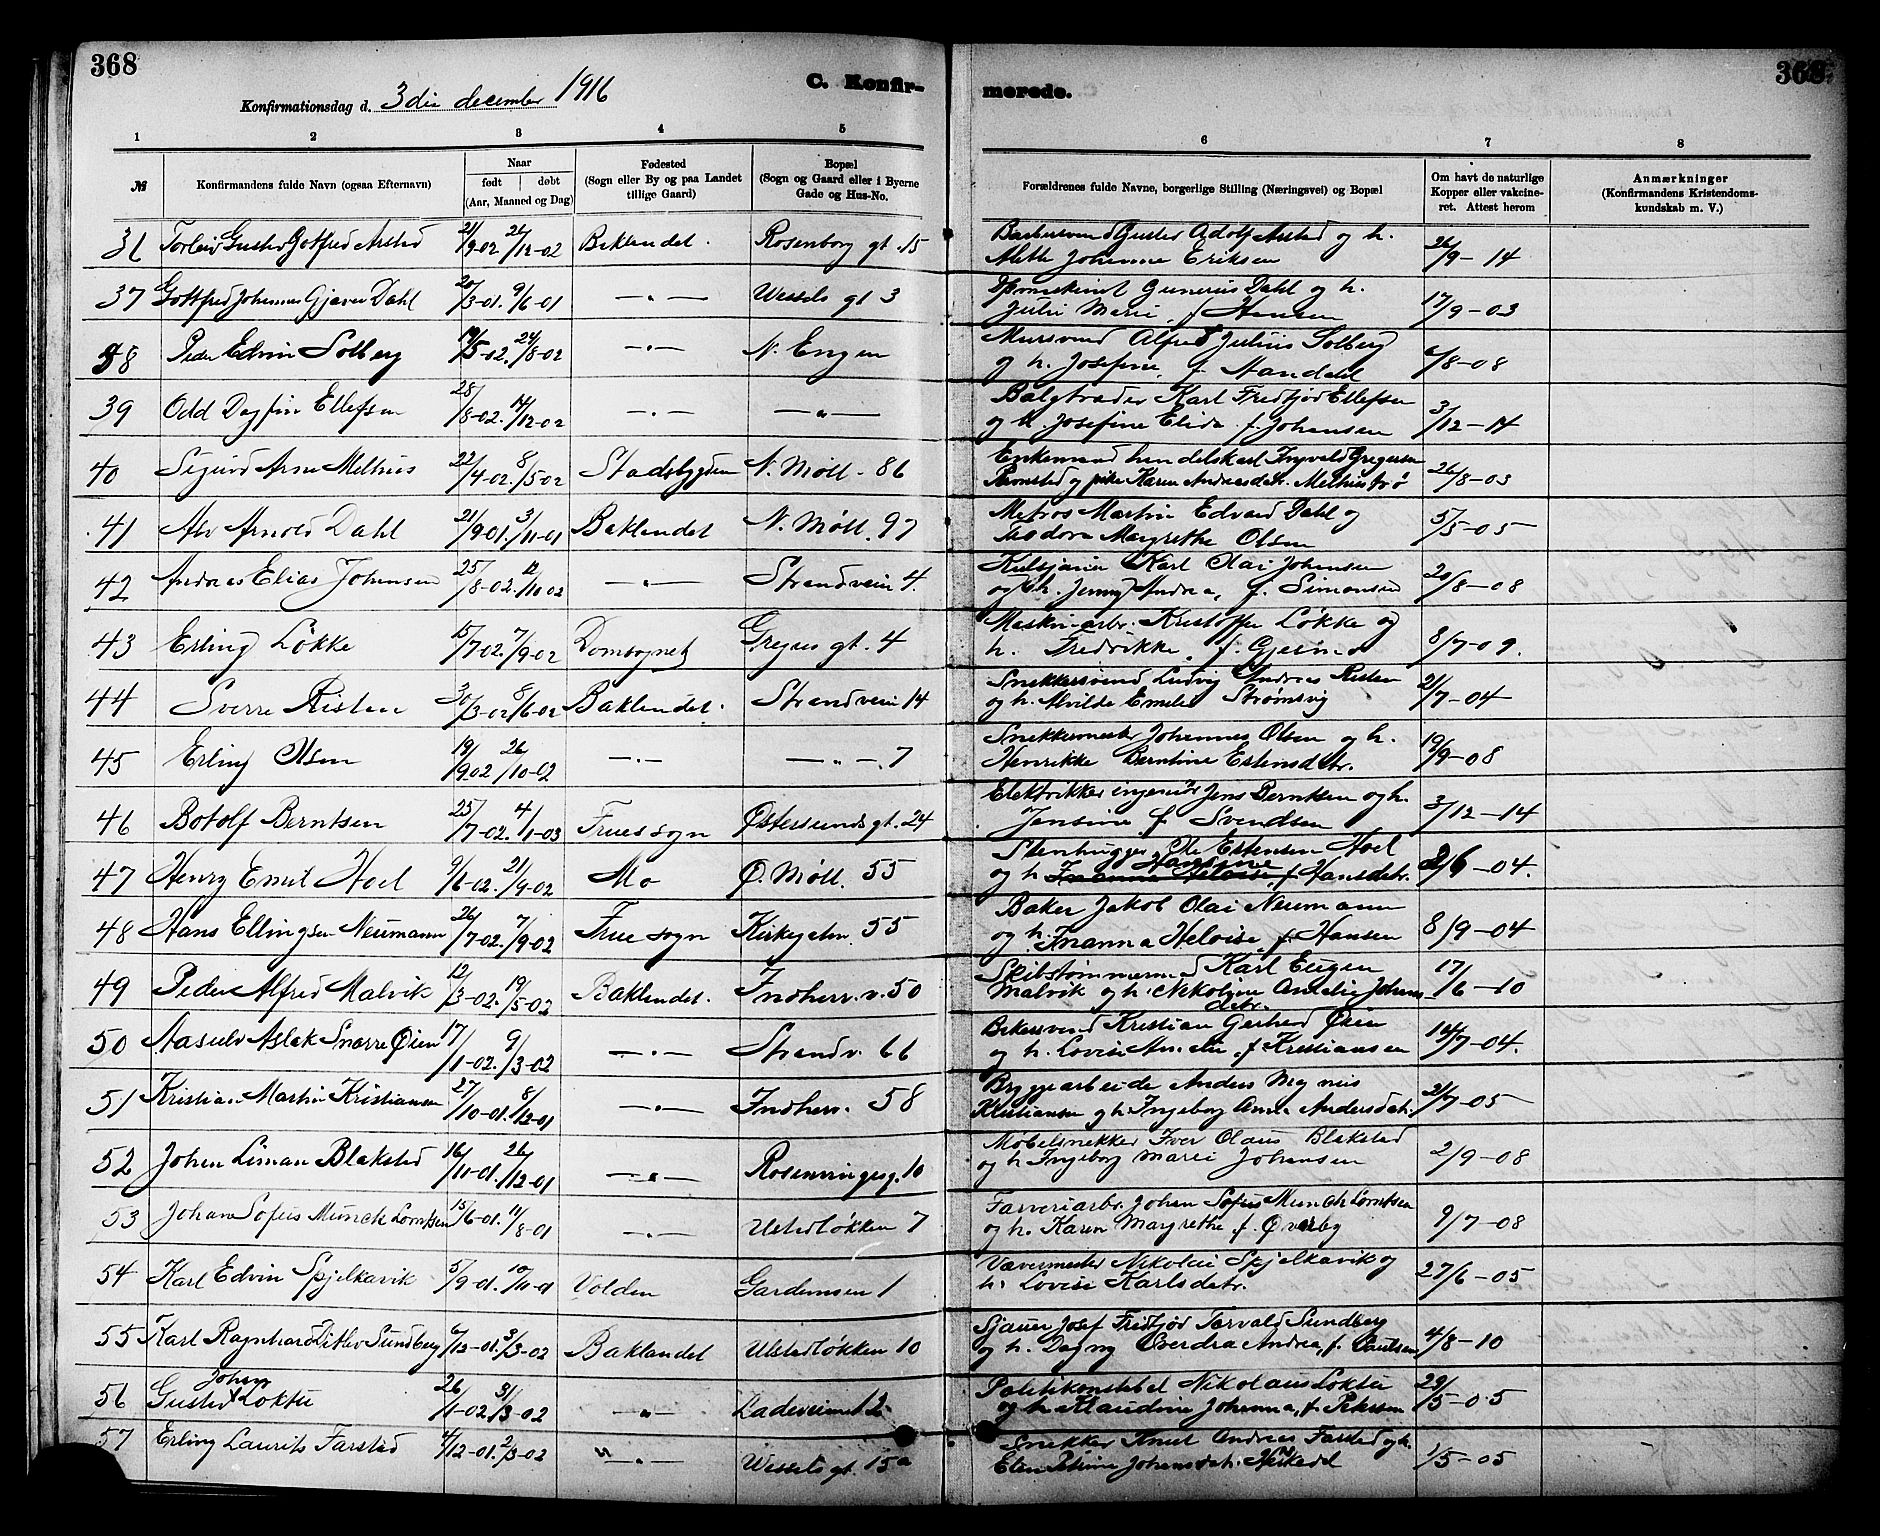 368
Konfirmationsdag d. 3die december 1916
C. Konfir-
1 2 3 4 5
№
Konfirmandens fulde Navn (ogsaa Efternavn)
Naar
født | døbt
(Aar, Maaned og Dag)
Fødested
(Sogn eller By og paa Landet
tillige Gaard)
Bopæl
(Sogn og Gaard eller i Byerne
Gade og Hus-No.
merede.
368
6 7 8
Forældrenes fulde Navne, borgerlige Stilling (Næringsvei) og Bopæl
Om havt de naturlige
Kopper eller vakcine-
ret. Attest herom
Anmærkninger
(Konfirmandens Kristendoms-
kundskab m. V.)
Gotfred 21/9-02 Baklandet. Rosenborg gt. 15
Gustav Adolf og h.
Johanne Eriksen 26/9-14
37 Gottfred Johannes Dahl 20/3-01. 9/6-01 —"— Wessels gt 3
Gunerius Dahl og h.
Marie, f Hansen 17/9-03
38 Peder Edvin Solberg 24/8-02 —"— N. Engen
Mursvend Alfred Julius Solberg
og h. Josefine, f /8-08
39 Odd Dagfin Ellefsen 28/8-02. 14/12-02 —"— —"—
Karl Fredtjod Ellefsen
og h. Josefine Elida f. Johansen 3/12-14
40 Sigurd Arne Melhus 22/4-02. 8/5-02 Stadsbygden N. Møll. 86
Enkemand handelskarl Ingvald Gregersen
og pike Karen Andreasdatr. 26/8-03
41 Alv Arnold Dahl 21/9-01. 3/11-01 Baklandet N. Møll. 97
Matros Martin Edvard Dahl og
Margrethe Olsen 5/5-05
42 Andreas Elias Johansen 25/8-02. /10 02 —"— Strandveien 4.
Karl Olai Johansen
og h. Jenny Andrea, f. Simonsen 20/8-08
43 Erling Løkke 15/7-02. 7/9-02 Domsognet gt. 4
Maskinarb. Kristoffer Løkke og
h. Fredrikke, f. 8/7-09.
44 Sverre Risten 30/3-02 8/6-02 Baklandet. Strandveien 14
Snekkersvend Ludvig Andreas Risten
og h. Alvilde Emelie Strømsvig 21/7-04
45 Erling Olsen 19/9 02 26/10-02 —"— —"—. 7
Snekkermester Johannes Olsen og h.
Henrikke Berntine Estensdatr. 19/9-08
46 Botolf Berntsen 25/7-02. 4/1-03 Frues sogn Østersunds gt. 24
Elektrikker ingeniør Jens Berntsen og h.
Jensine f. Svendsen 3/12-14
47 Henry Emil Hoel 9/6-02. 21/9-02 Mo Ø. Møll. 55
Stenhugger Ole Estensen Hoel
og h Hansine Inanna Heloise, f Hansdatr. 2/6-04.
48 Hans Ellingsen Neumann 26/7-02. 7/9-02 Frue sogn Kirkegaten. 55
Baker Jakob Olai Neumann
og h. Inanna Heloise, f. Hansen 8/9-04
49 Peder Alfred Malvik 12/3-02. 19/5-02 Baklandet. Indherr. v. 50
Skibstømmermand Karl Eugen
Malvik og h. Nikoline Amelie Johans
datr. 17/6-10
50 Aasulv Aslak Snorre Øien 17/1-02. 9/3-02 —"— Strandv. 66
Bakersvend Kristian Gerhard Øien
og h. Lovise Amelie, f. Kristiansen 14/7-04.
51 Kristian Martin Kristiansen 27/10-01. 8/12-01 —"— Indherr. 58
Bryggearbeide Anders Magnus
Kristiansen og h. Ingeborg Anna Andersdatr. 21/7-05
52 Johan Liman Blakstad 16/11-01. 26/12-01 —"— Rosenvingesg. 10
Møbelsnekker Iver Olaus Blakstad
og h Ingeborg Marie Johansen 2/9-08
53 Johan Sofus Munck Lorntsen 15/6-01. 11/8-01 —"— Ulstadløkken 7
Farveriarb. Johan Sofus Munck Lorntsen
og h. Karen Margrethe f. Øverby 9/7-08
54 Karl Edvin Spjelkavik 5/9-01. 10/11-01 Volden Gardemoen 1
Vævermester Nikolai Spjelkavik og
h. Lovise Karlsdatr. 27/6-05
55 Karl Ragnhard Ditlev Sundberg 6/12-01. 3/3-02 Baklandet Ulstadløkken 10
Sjauer Josef Fridtjod Torvald Sundberg
og h. Dagny Everdra Andrea, f. Paulsen 4/8-10
56 Gustav Johan Løktu 26/1-02. 31/3-02 —"— Ladeveien 12
Politikonstabel Nikolaus Løktu
og h Klaudine Johanna, f. Petersen 29/5-05
57 Erling Laurits Farstad 4/12-01. 2/3-02 —"— Wessels gt. 15a
Snekker Knut Andreas Farstad og h.
Elen Petrine Johansdatr. 1/5-05